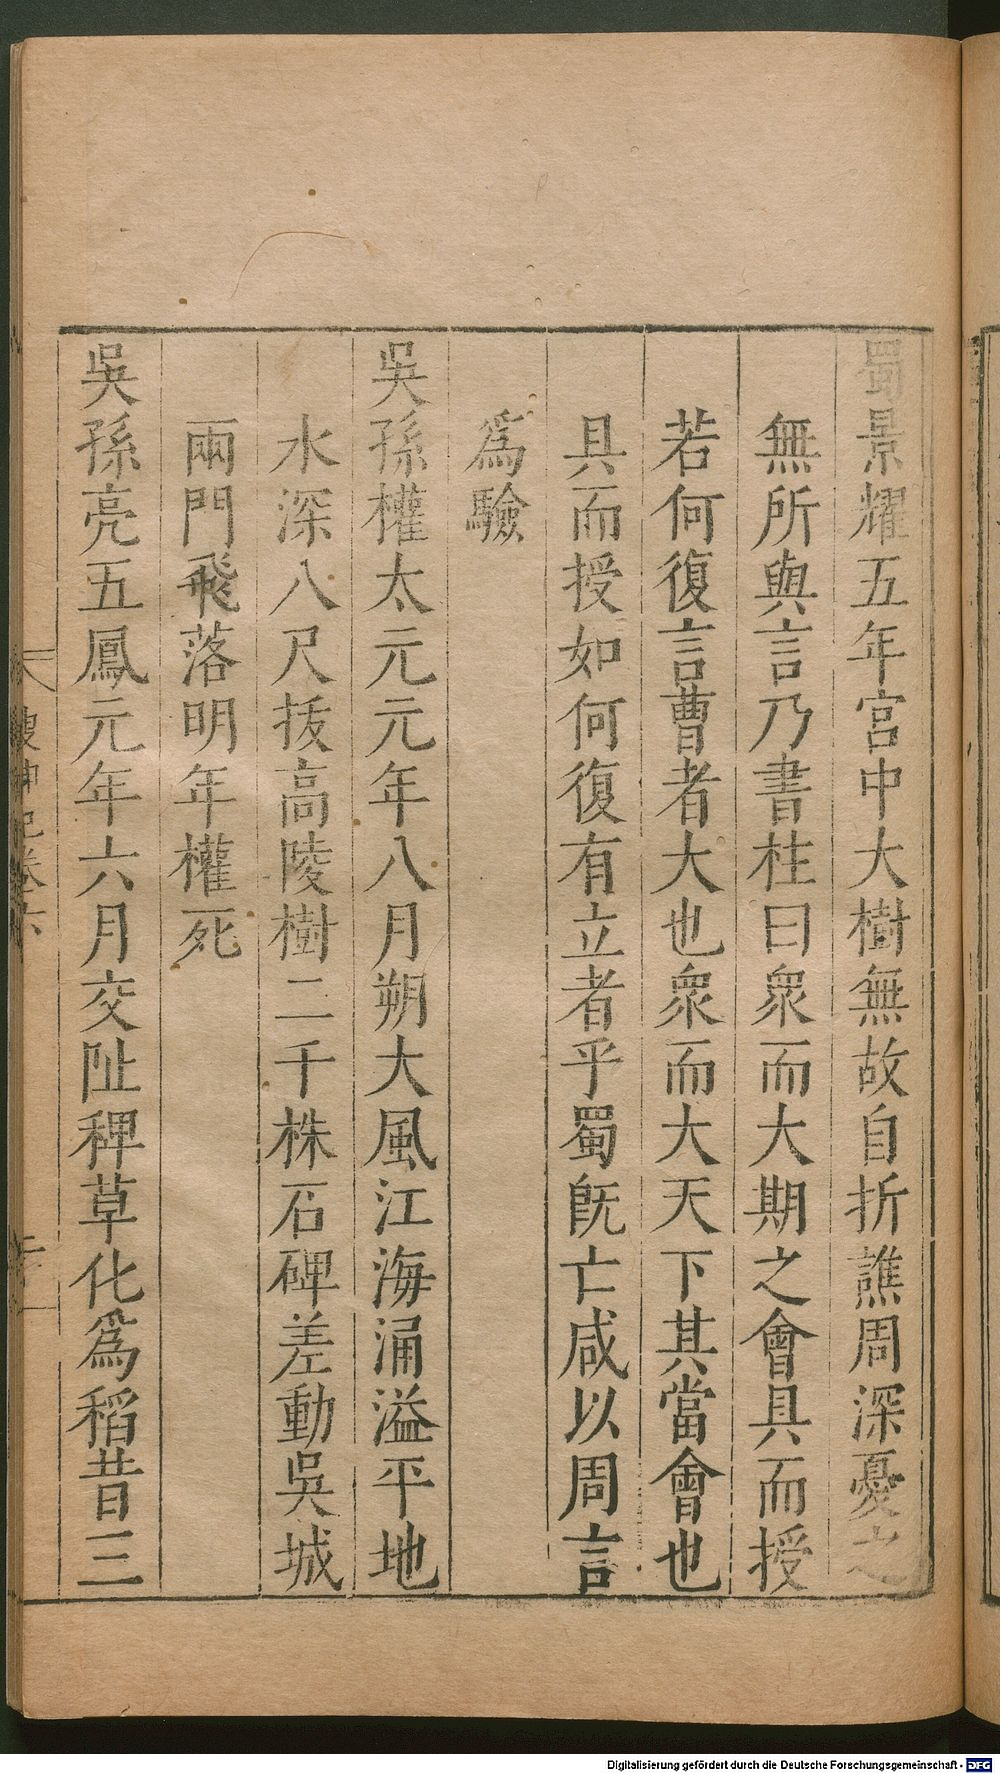 蜀景耀五年宮中大樹無故自折譙周深憂之
無所與言乃書柱曰眾而大期之會具而授
若何復言曹者大也眾而大天下其當會也
具而授如何復有立者乎蜀既亡咸以周言
爲驗
吳孫權太元元年八月朔大風江海涌溢平地
水深八尺拔高陵樹二千株石碑差動吳城
兩門飛落明年權死
吳孫亮五鳳元年六月交阯稗草化爲稻昔三
搜神記卷六
Digitalisierung gefördert durch die Deutsche Forschungsgemeinschaft - DFG